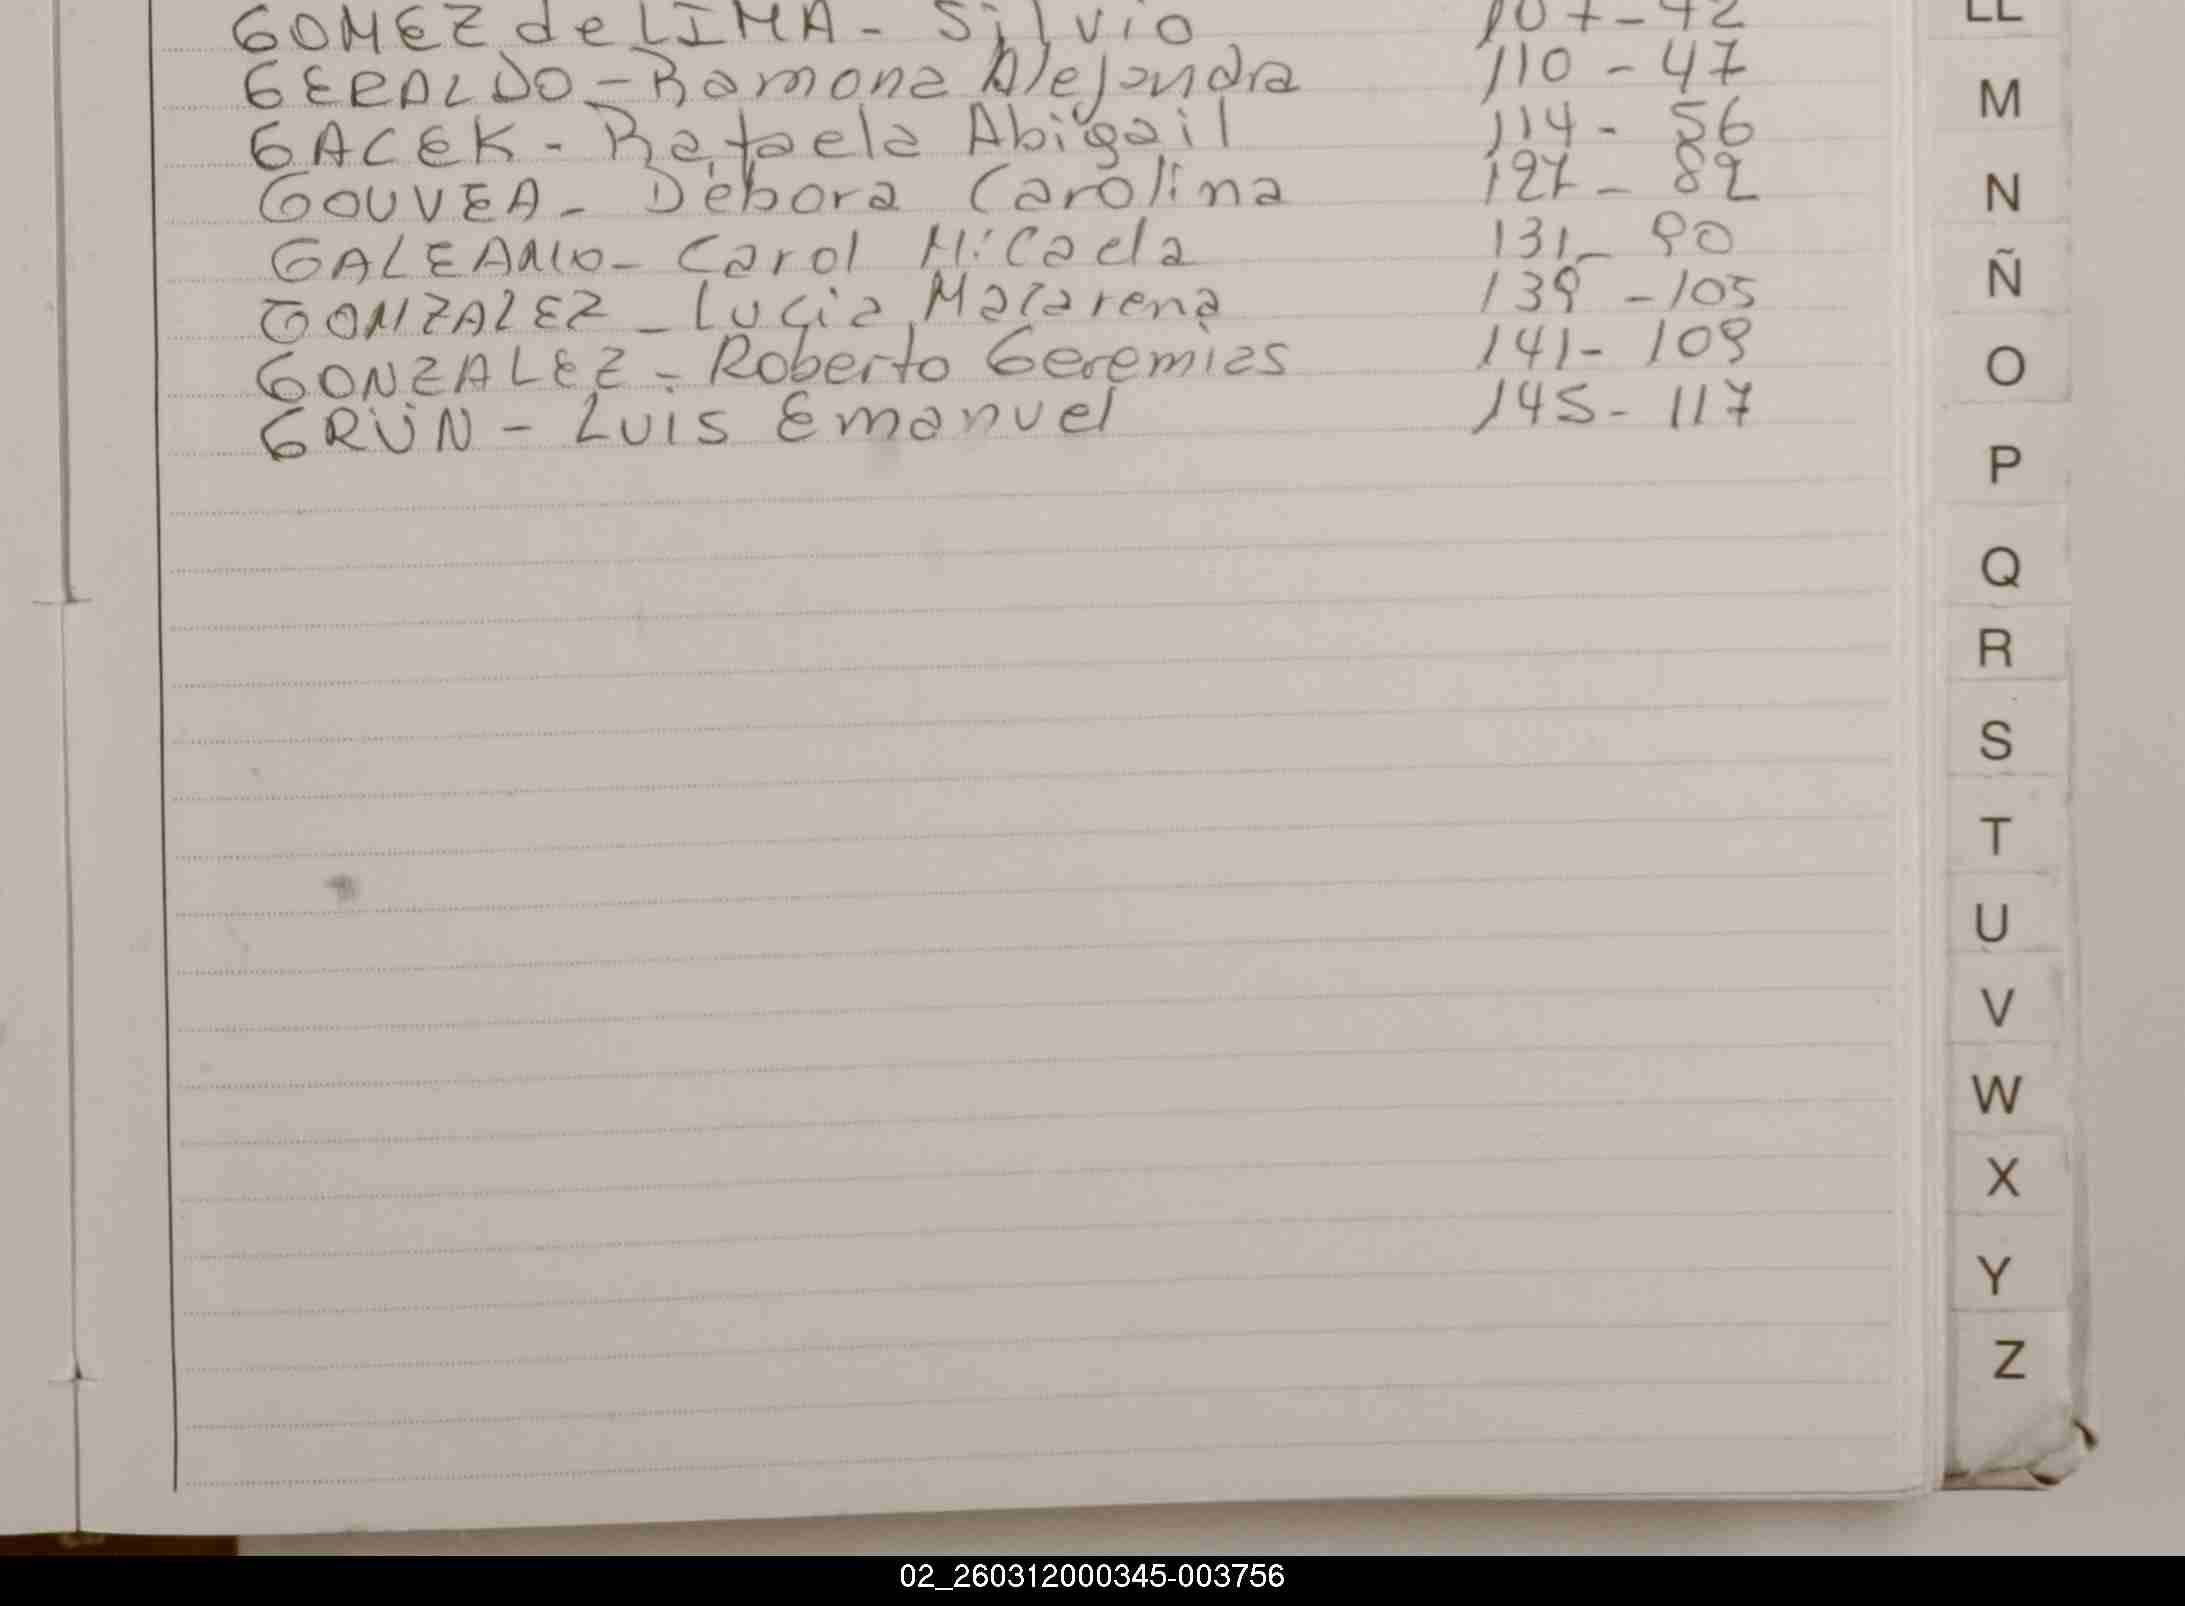 GOMEZ de LIMA - Silvio 107 - 42
GERALDO - Ramona Alejandra 110 - 47
GACEK - Rafaela Abigail 114 - 56
GOUVEA - Débora Carolina 127 - 82
GALEANO - Carol Micaela 131 - 90
GONZALEZ - Lucia Macarena 139 - 105
GONZALEZ - Roberto Geremias 141 - 109
GRÜN - Luis Emanuel 145 - 117
LL
M
N
Ñ
O
P
Q
R
S
T
U
V
W
X
Y
Z
02_260312000345-003756